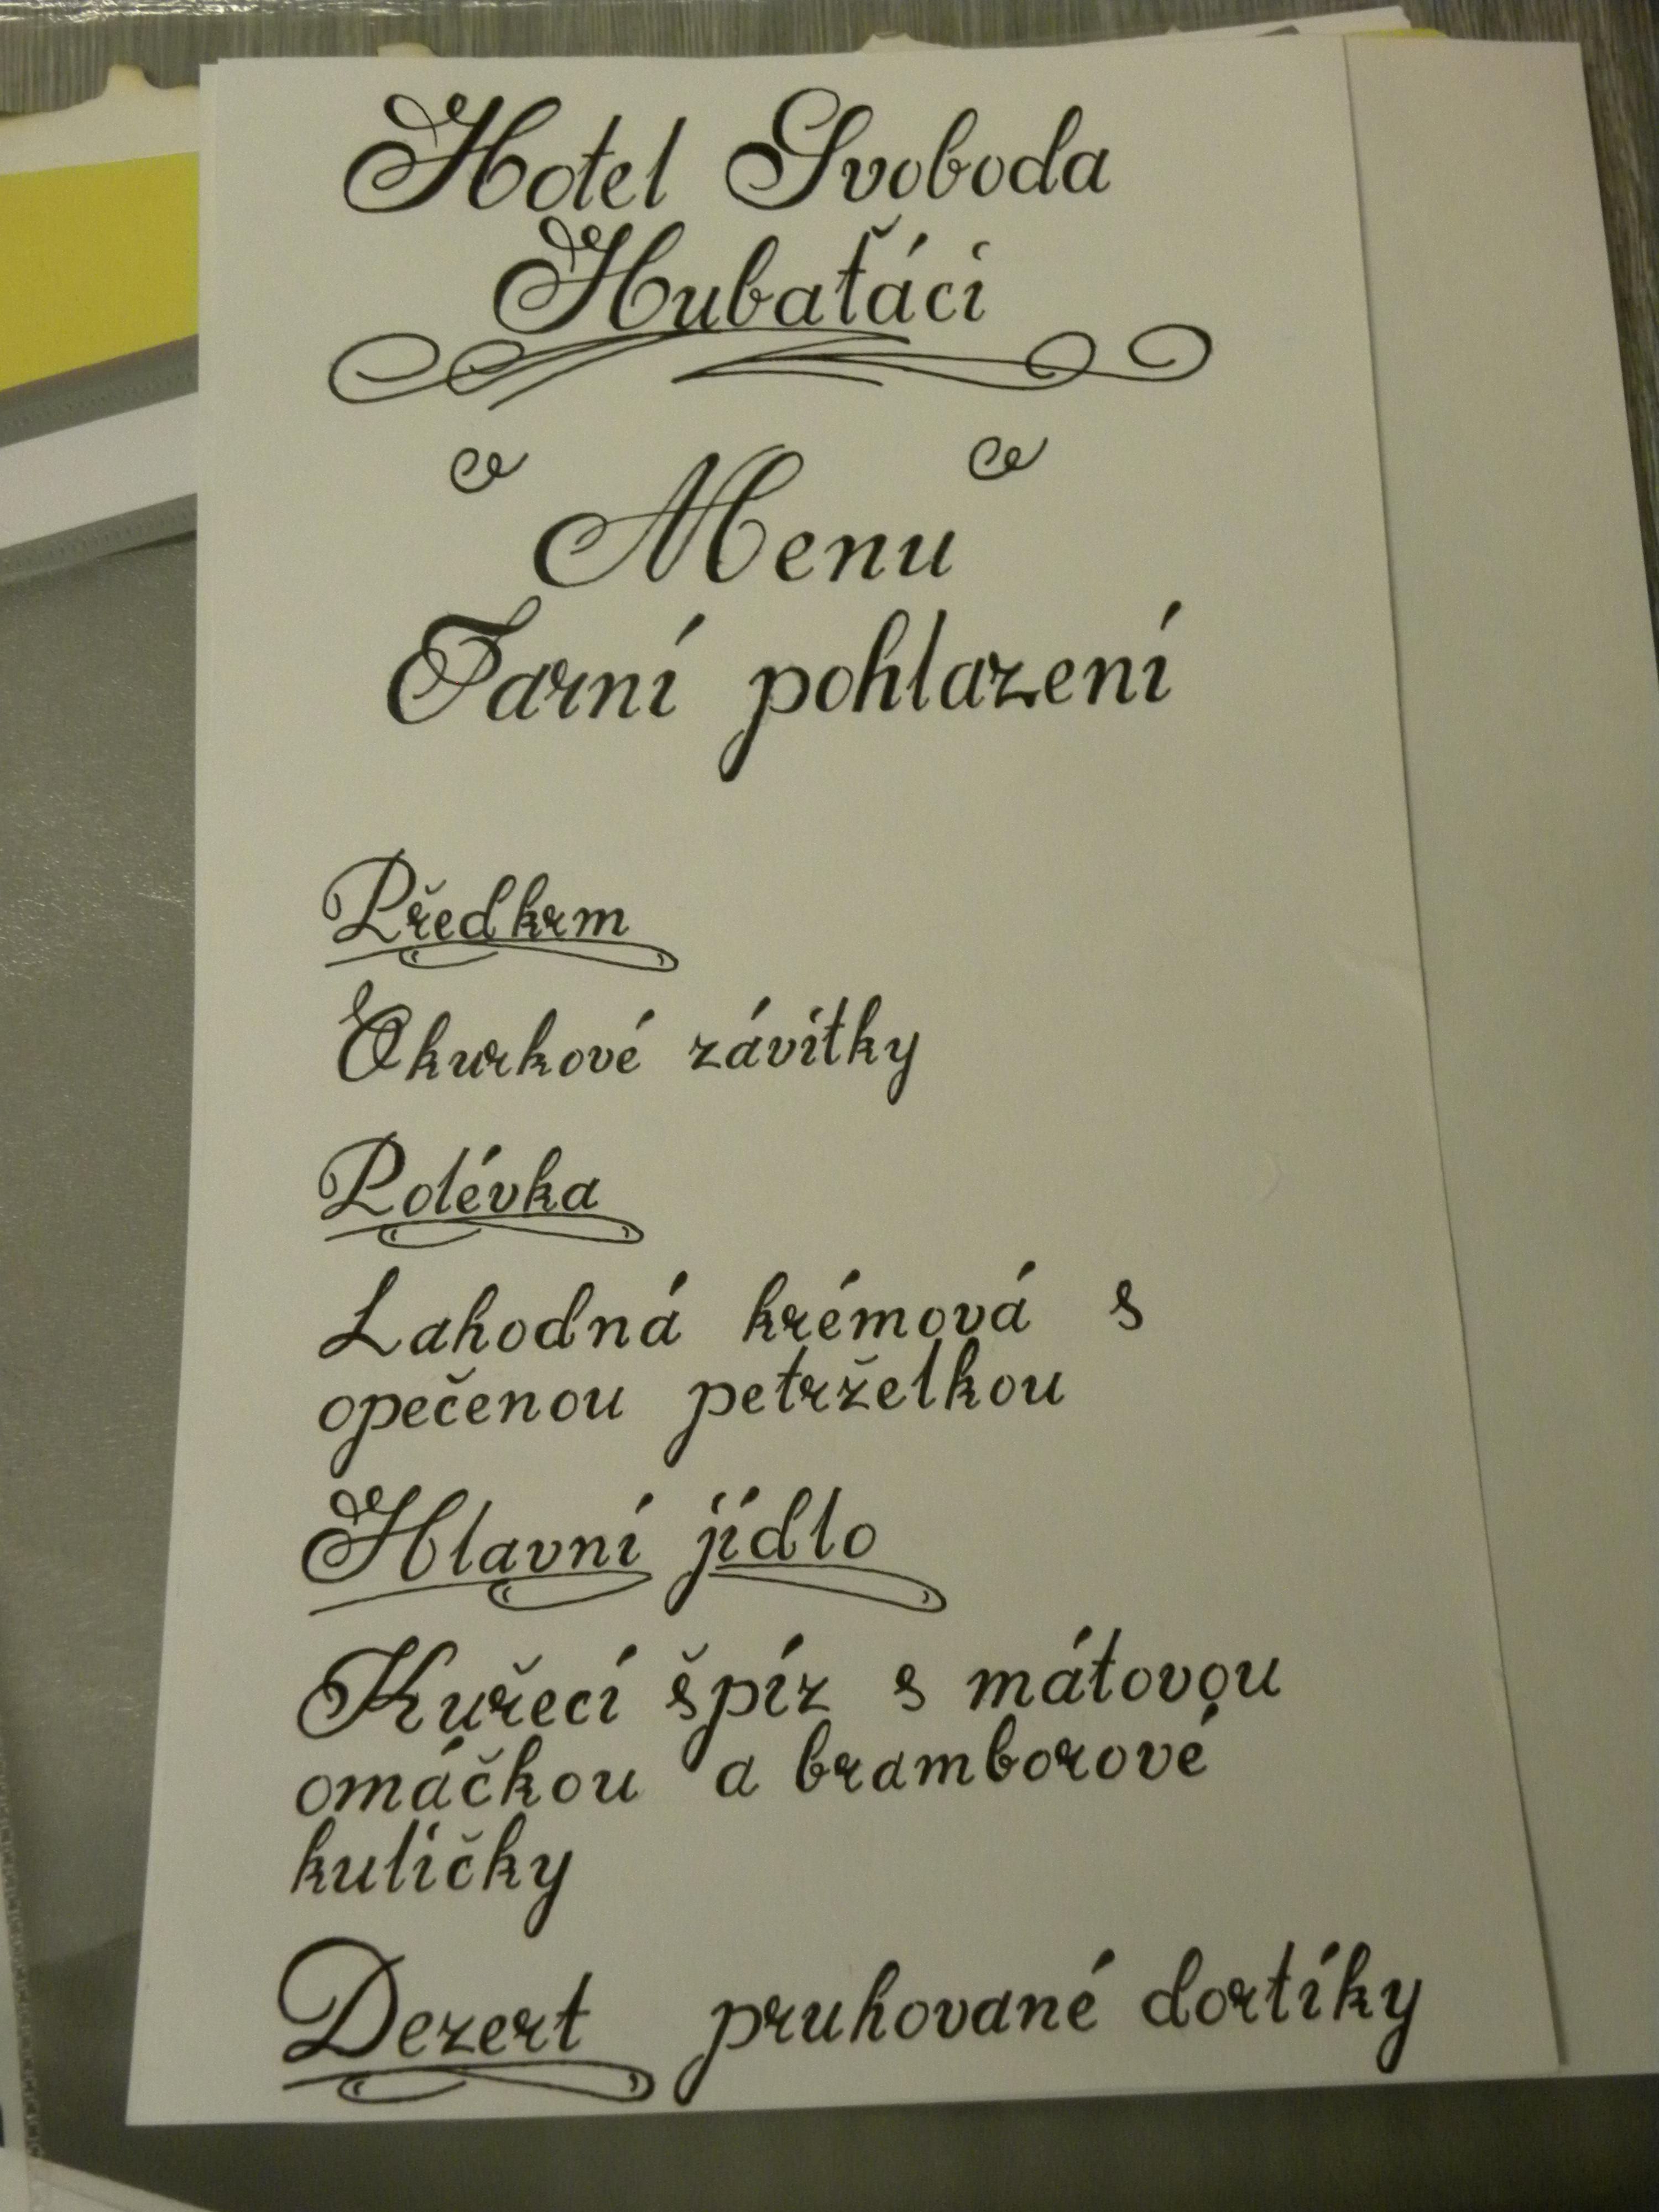 Hotel Svoboda
Hubaťáci
Menu
Jarní pohlazení
Předkrm
Okurkové závitky
Polévka
Lahodná krémová s
opečenou petrželkou
Hlavní jídlo
Kuřecí špíz s mátovou
omáčkou a bramborové
kuličky
Dezert pruhované dortíky